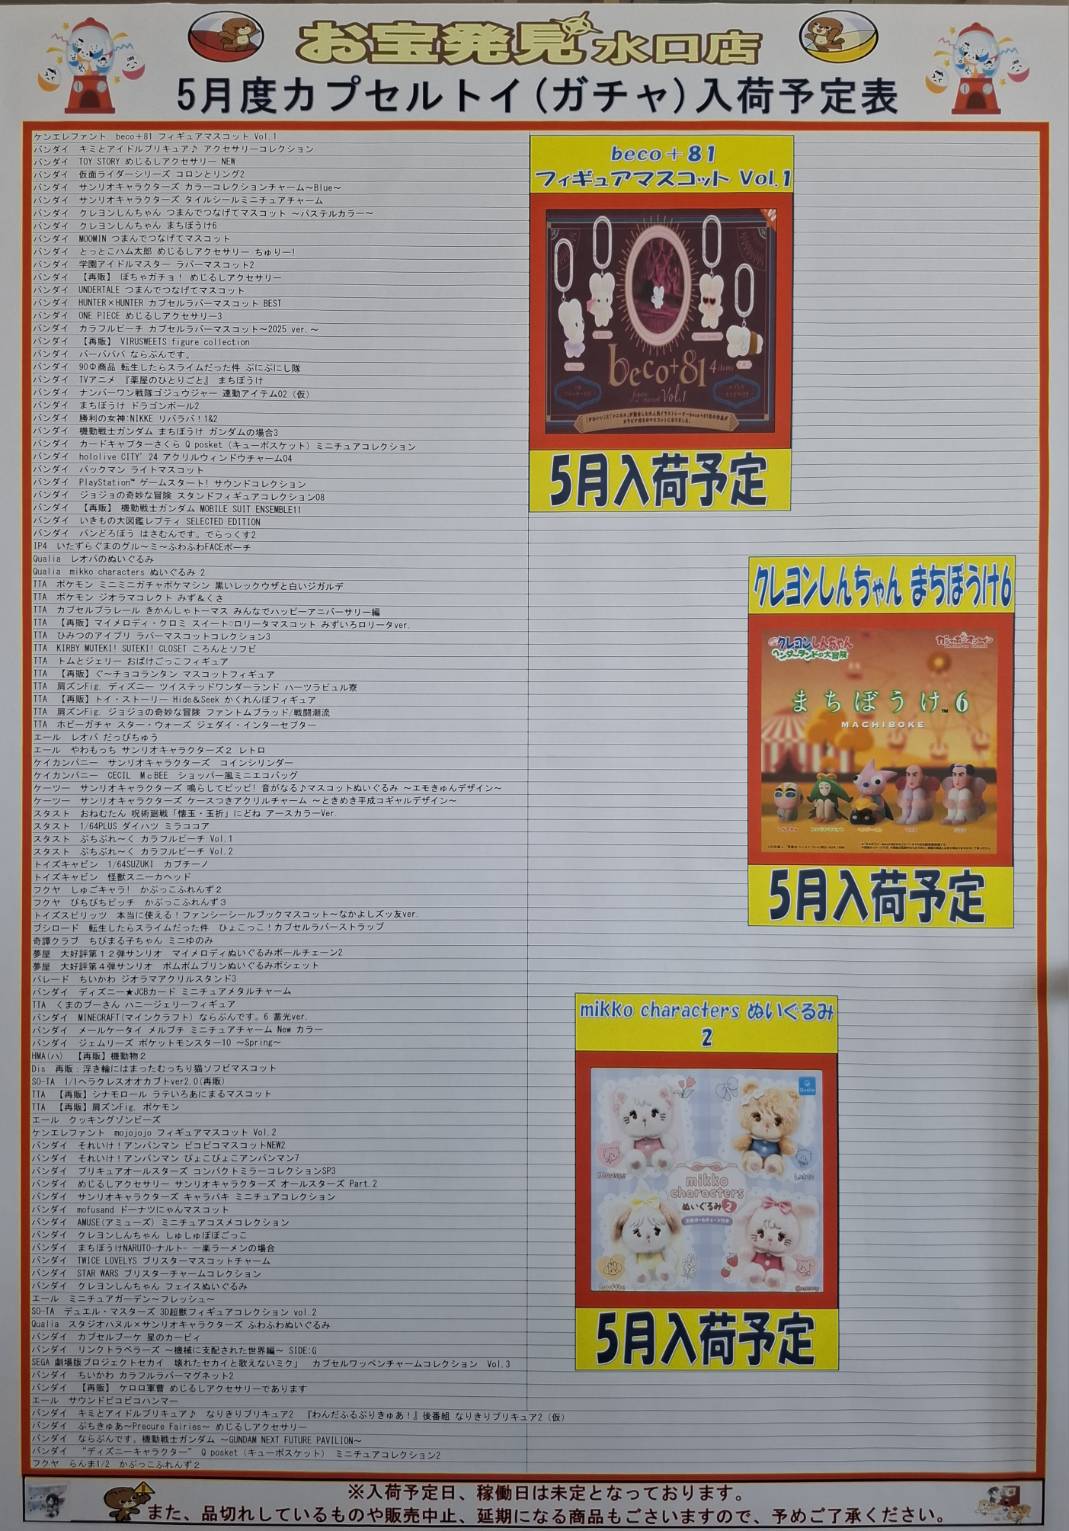 お宝発見 水口店
5月度カプセルトイ(ガチャ)入荷予定表
ケンエレファント beco+81 フィギュアマスコット Vol.1
バンダイ キミとアイドルプリキュア♪ アクセサリーコレクション
バンダイ TOY STORY めじるしアクセサリー NEW
バンダイ 仮面ライダーシリーズ コロンとリング2
バンダイ サンリオキャラクターズ カラーコレクションチャーム～Blue～
バンダイ サンリオキャラクターズ タイルシールミニチュアチャーム
バンダイ クレヨンしんちゃん つまんでつなげてマスコット ～パステルカラー～
バンダイ クレヨンしんちゃん まちぼうけ6
バンダイ MOOMIN つまんでつなげてマスコット
バンダイ とっとこハム太郎 めじるしアクセサリー ちゅりー!
バンダイ 学園アイドルマスター ラバーマスコット2
バンダイ 【再販】 ぼちゃガチョ! めじるしアクセサリー
バンダイ UNDERTALE つまんでつなげてマスコット
バンダイ HUNTER×HUNTER カプセルラバーマスコット BEST
バンダイ ONE PIECE めじるしアクセサリー3
バンダイ カラフルピーチ カプセルラバーマスコット～2025 ver.～
バンダイ 【再販】 VIRUSWEETS figure collection
バンダイ バーバパパ ならぶんです。
バンダイ 90Φ商品 転生したらスライムだった件 ぷにぷにし隊
バンダイ TVアニメ 『薬屋のひとりごと』 まちぼうけ
バンダイ ナンバーワン戦隊ゴジュウジャー 連動アイテム02（仮）
バンダイ まちぼうけ ドラゴンボール2
バンダイ 勝利の女神:NIKKE リバラバ！1&2
バンダイ 機動戦士ガンダム まちぼうけ ガンダムの場合3
バンダイ カードキャプターさくら Q posket（キューポスケット）ミニチュアコレクション
バンダイ hololive CITY' 24 アクリルウィンドウチャーム04
バンダイ パックマン ライトマスコット
バンダイ PlayStation™ ゲームスタート! サウンドコレクション
バンダイ ジョジョの奇妙な冒険 スタンドフィギュアコレクション08
バンダイ 【再販】 機動戦士ガンダム MOBILE SUIT ENSEMBLE11
バンダイ いきもの大図鑑レプティ SELECTED EDITION
バンダイ パンどろぼう はさむんです。でらっくす2
IP4 いたずらぐまのグル～ミ～ふわふわFACEポーチ
Qualia レオパのぬいぐるみ
Qualia mikko characters ぬいぐるみ 2
TTA ポケモン ミニミニガチャポケマシン 黒いレックウザと白いジガルデ
TTA ポケモン ジオラマコレクト みず＆くさ
TTA カプセルプラレール きかんしゃトーマス みんなでハッピーアニバーサリー編
TTA 【再販】マイメロディ・クロミ スイート♡ロリータマスコット みずいろロリータver.
TTA ひみつのアイプリ ラバーマスコットコレクション3
TTA KIRBY MUTEKI! SUTEKI! CLOSET ころんとソフビ
TTA トムとジェリー おばけごっこフィギュア
TTA 【再販】ぐ～チョコランタン マスコットフィギュア
TTA 肩ズンFig. ディズニー ツイステッドワンダーランド ハーツラビュル寮
TTA 【再販】トイ・ストーリー Hide＆Seek かくれんぼフィギュア
TTA 肩ズンFig. ジョジョの奇妙な冒険 ファントムブラッド/戦闘潮流
TTA ホビーガチャ スター・ウォーズ ジェダイ・インターセプター
エール レオパ だっぴちゅう
エール やわもっち サンリオキャラクターズ２ レトロ
ケイカンパニー サンリオキャラクターズ コインシリンダー
ケイカンパニー CECIL McBEE ショッパー風ミニエコバッグ
ケーツー サンリオキャラクターズ 鳴らしてピッピ! 音がなる♪マスコットぬいぐるみ ～エモきゅんデザイン～
ケーツー サンリオキャラクターズ ケースつきアクリルチャーム ～ときめき平成コギャルデザイン～
スタスト おねむたん 呪術廻戦「懐玉・玉折」にどね アースカラーVer.
スタスト 1/64PLUS ダイハツ ミラココア
スタスト ぷちぷれ～く カラフルピーチ Vol.1
スタスト ぷちぷれ～く カラフルピーチ Vol.2
トイズキャビン 1/64SUZUKI カプチーノ
トイズキャビン 怪獣スニーカヘッド
フクヤ しゅごキャラ! かぷっこふれんず２
フクヤ ぴちぴちピッチ かぷっこふれんず３
トイズスピリッツ 本当に使える!ファンシーシールブックマスコット～なかよしズッ友ver.
ブシロード 転生したらスライムだった件 ひょこっこ!カプセルラバーストラップ
奇譚クラブ ちびまる子ちゃん ミニゆのみ
夢屋 大好評第１２弾サンリオ マイメロディぬいぐるみボールチェーン2
夢屋 大好評第４弾サンリオ ポムポムプリンぬいぐるみポシェット
パレード ちいかわ ジオラマアクリルスタンド3
バンダイ ディズニー★JCBカード ミニチュアメタルチャーム
TTA くまのプーさん ハニージェリーフィギュア
バンダイ MINECRAFT(マインクラフト) ならぶんです。6 蓄光ver.
バンダイ メールケータイ メルプチ ミニチュアチャーム New カラー
バンダイ ジェムリーズ ポケットモンスター10 ～Spring～
HMA(ハ) 【再販】機動物２
Dis 再販：浮き輪にはまったむっちり猫ソフビマスコット
SO-TA 1/1ヘラクレスオオカブトver2.0(再販)
TTA 【再販】シナモロール ラテいろあにまるマスコット
TTA 【再販】肩ズンFig. ポケモン
エール クッキングゾンビーズ
ケンエレファント mojojojo フィギュアマスコット Vol.2
バンダイ それいけ！アンパンマン ピコピコマスコットNEW2
バンダイ それいけ！アンパンマン ぴょこぴょこアンパンマン7
バンダイ プリキュアオールスターズ コンパクトミラーコレクションSP3
バンダイ めじるしアクセサリー サンリオキャラクターズ オールスターズ Part.2
バンダイ サンリオキャラクターズ キャラパキ ミニチュアコレクション
バンダイ mofusand ドーナツにゃんマスコット
バンダイ AMUSE(アミューズ) ミニチュアコスメコレクション
バンダイ クレヨンしんちゃん しゅしゅぽぽごっこ
バンダイ まちぼうけNARUTO-ナルト- 一楽ラーメンの場合
バンダイ TWICE LOVELYS ブリスターマスコットチャーム
バンダイ STAR WARS ブリスターチャームコレクション
バンダイ クレヨンしんちゃん フェイスぬいぐるみ
エール ミニチュアガーデン～フレッシュ～
SO-TA デュエル・マスターズ 3D超獣フィギュアコレクション vol.2
Qualia スタジオハヌル×サンリオキャラクターズ ふわふわぬいぐるみ
バンダイ カプセルブーケ 星のカービィ
バンダイ リンクトラベラーズ ～機械に支配された世界編～ SIDE:G
SEGA 劇場版プロジェクトセカイ 壊れたセカイと歌えないミク」 カプセルワッペンチャームコレクション Vol.3
バンダイ ちいかわ カラフルラバーマグネット2
バンダイ 【再販】 ケロロ軍曹 めじるしアクセサリーであります
エール サウンドピコピコハンマー
バンダイ キミとアイドルプリキュア♪ なりきりプリキュア2 『わんだふるぷりきゅあ！』後番組 なりきりプリキュア2（仮）
バンダイ ぷちきゅあ～Precure Fairies～ めじるしアクセサリー
バンダイ ならぶんです。機動戦士ガンダム ～GUNDAM NEXT FUTURE PAVILION～
バンダイ “ディズニーキャラクター” Q posket（キューポスケット） ミニチュアコレクション2
フクヤ らんま1/2 かぷっこふれんず２
beco+81
フィギュアマスコット Vol.1
beco+81
Vol.1
5月入荷予定
クレヨンしんちゃん まちぼうけ6
クレヨンしんちゃん
まちぼうけ6
MACHIBOKE
5月入荷予定
mikko characters ぬいぐるみ
2
Qualia
mikko
characters
ぬいぐるみ2
5月入荷予定
※入荷予定日、稼働日は未定となっております。
また、品切れしているものや販売中止、延期になる商品もごさいますので、予めご了承ください。